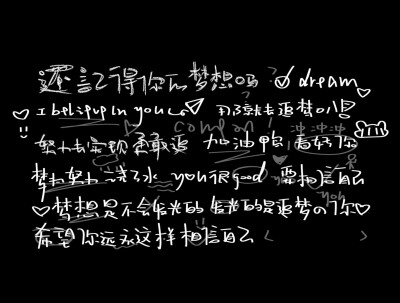 還記得你的梦想吗? dream
I believe in you 用力就去追梦吧
努力去实现 勇敢追 加油鸭 看好你
come on! 冲冲冲
梦想努力 you很good 要相信自己
梦想是不会发光的 发光的是追梦的你
希望你永远这样相信自己